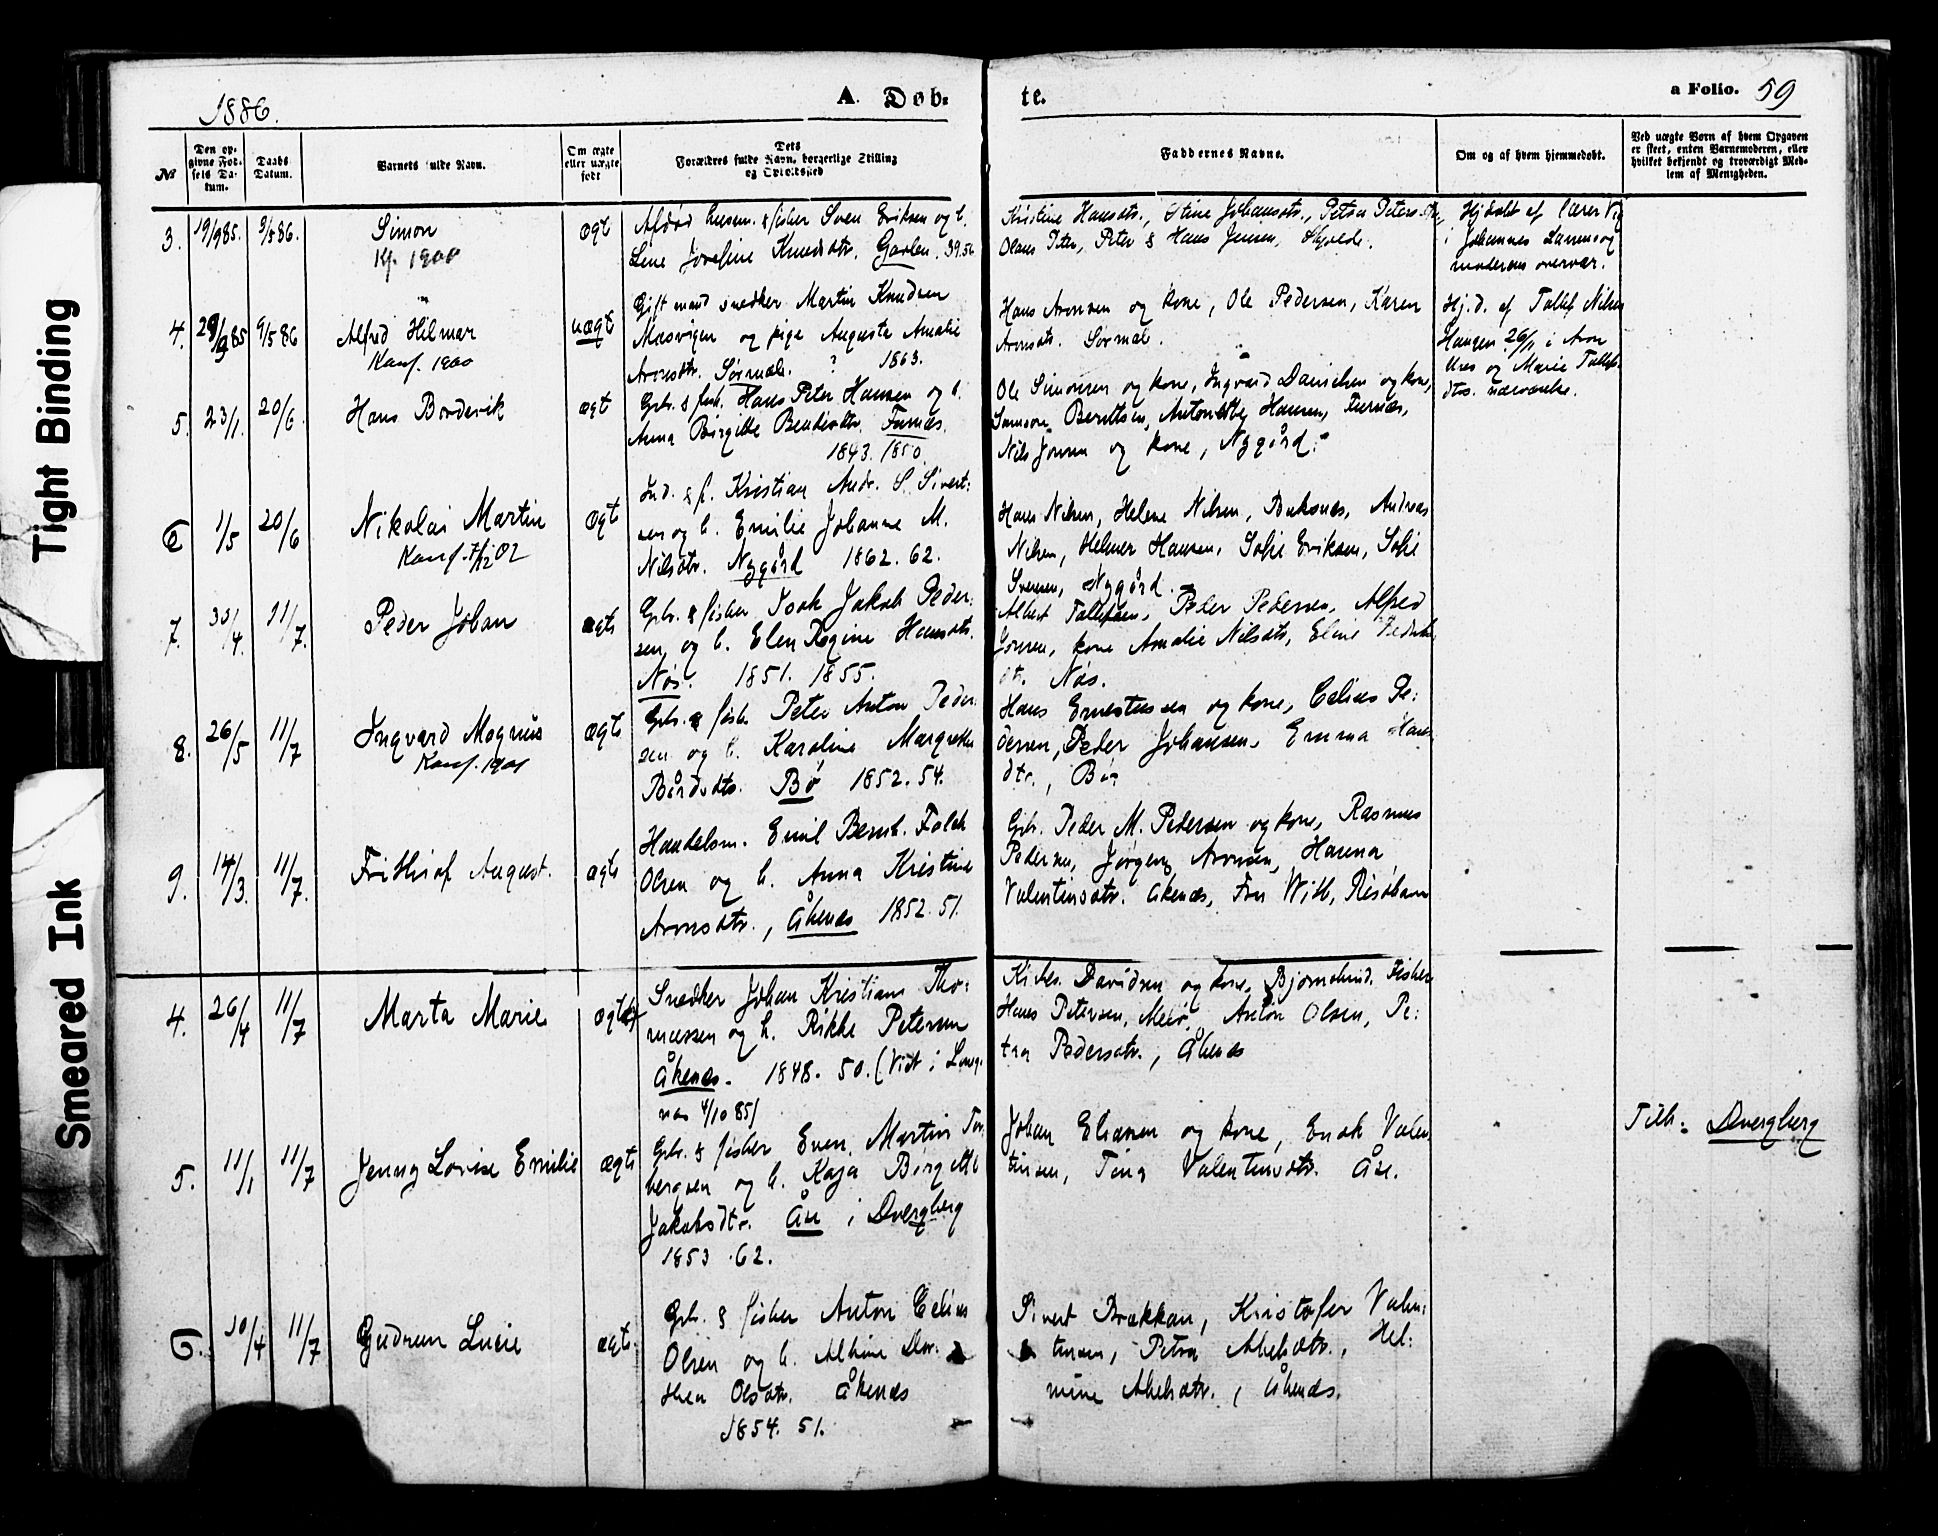 Tight Binding
Smeared Ink
1886.
A. Døb=
te.
a Folio. 59
№
Den op-
givne Fød-
sels Da-
tum.
Daabs
Datum.
Barnets fulde Navn.
Om ægte
eller uægte
født
Dets
Forældres fulde Navn, borgerlige Stilling
og Opholdssted
Faddernes Navne.
Om og af hvem hjemmedøbt.
Ved uægte Børn af hvem Opgaven
er skeet, enten Barnemoderen, eller
hvilket bekjendt og troværdigt Med-
lem af Menigheden.
3. 19/9 85. 9/5 86. Simon ægt
Kf. 1900
Afdød husm. & fisker Sven Eriksen og h.
Lene Josefine Knudsdtr. Gavlen. 39.
Kristine Hansdtr., Stine Johansdtr., Petra Peters
Olaus Peter, Peter & Hans Jensen, Skjolde.
Hjdøbt af lærer
i Johannes
moderens overvær.
4. 9/5 86 Alfred Hilmar uægt
Konf. 1900
Gift mand snedker Martin Knudsen
Masvigen og pige Augusta Amalie
Aronsdtr. Sørmela. ? 1863.
Hans Aronsen og kone, Ole Pedersen, Karen
Aronsdtr. Sørmela.
Hj.d. af Tollef Nilsen
Haugen 26/11 i Aron
og Marie Tollef
dtrs. nærværelse.
5. 23/1. 20/6. Hans Bordevik ægt
Gbr. & fisk. Hans Peter Hansen og h.
Anna Birgitte Bendixdtr. Furnæs.
1843. 1850.
Ole Simonsen og kone, Ingvard Danielsen og kone,
Berntsen, Antonette Hansen, Furnæs,
Nils Jonsen og kone, Nygård.
6 1/5 20/6 Nikolai Martin ægt
Konf. 02
Ind. & f. Kristian Andr. S. Sivert=
sen og h. Emilie Johanne M.
Nilsdtr. Nygård 1862. 62.
Hans Nilsen, Helene Nilsen, Buksnes, Andreas
Nilsen, Helmer Hansen, Sofie Eriksen, Sofie
Svensen, Nygård.
7. 30/4. 11/7. Peder Johan ægte
Gbr. & fisker Isak Jakob Peder=
sen og h. Elen Regine Hansdtr.
Nøs. 1851. 1855.
Albert Tollefsen, Peter Pedersen, Alfred
Jonsen, kone Amalie Nilsdtr, Eline
dtr. Nøs.
8. 26/5 11/7 Ingvard Magnus ægte
Konf. 1901
Gbr. & fisk. Peter Anton Peder
sen og h. Karoline Margrethe
Bårdsdtr. Bø 1852. 54.
Hans Ernestussen og kone, Celius Pe=
dersen, Peder Johansen, Emma Hans
dtr., Bø
9. 14/3. 11/7. Frithiof August. ægte
Handelsm. Emil Bernh. Falch
Olsen og h. Anna Kristine
Aronsdtr., Åkenæs 1852. 51.
Gbr. Peder M. Pedersen og kone, Rasmus
Pedersen, Jørgen Aronsen, Hanna
Valentinsdtr. Åkenæs, Fru With, Risøhavn
4. 26/4 11/7 Marta Marie ægte
Snedker Johan Kristian Tho=
massen og h. Rikke Petersen
Åkenæs. 1848. 50. (Viet i Lang
næs 4/10 85)
Kirkes. Davidsen og kone, Bjørnskind, Fisker
Hans Petersen, Anton Olsen, Pe=
tra Pedersdtr., Åkenæs
5. 11/1 11/7 Jenny Lovise Emilie ægte
Gbr. & fisker Even Martin Tor
bergsen og h. Kaja Birgitte
Jakobsdtr. Åse i Dverberg
1853 .62.
Johan Eliassen og kone, Enok Valen
tinsen, Tina Valentinsdtr. Åse.
Tilh. Dverberg
6. 10/4 11/7 Gudrun Lucie ægte
Gbr. & fisker Anton Celius
Olsen og h. Albine Dor=
thea Olsdtr. Åkenæs
1854. 51.
Sivert Brækkan, Kristofer Valen=
tinsen, Petra Abelsdtr., Hel=
mine Abelsdtr., Åkenæs.